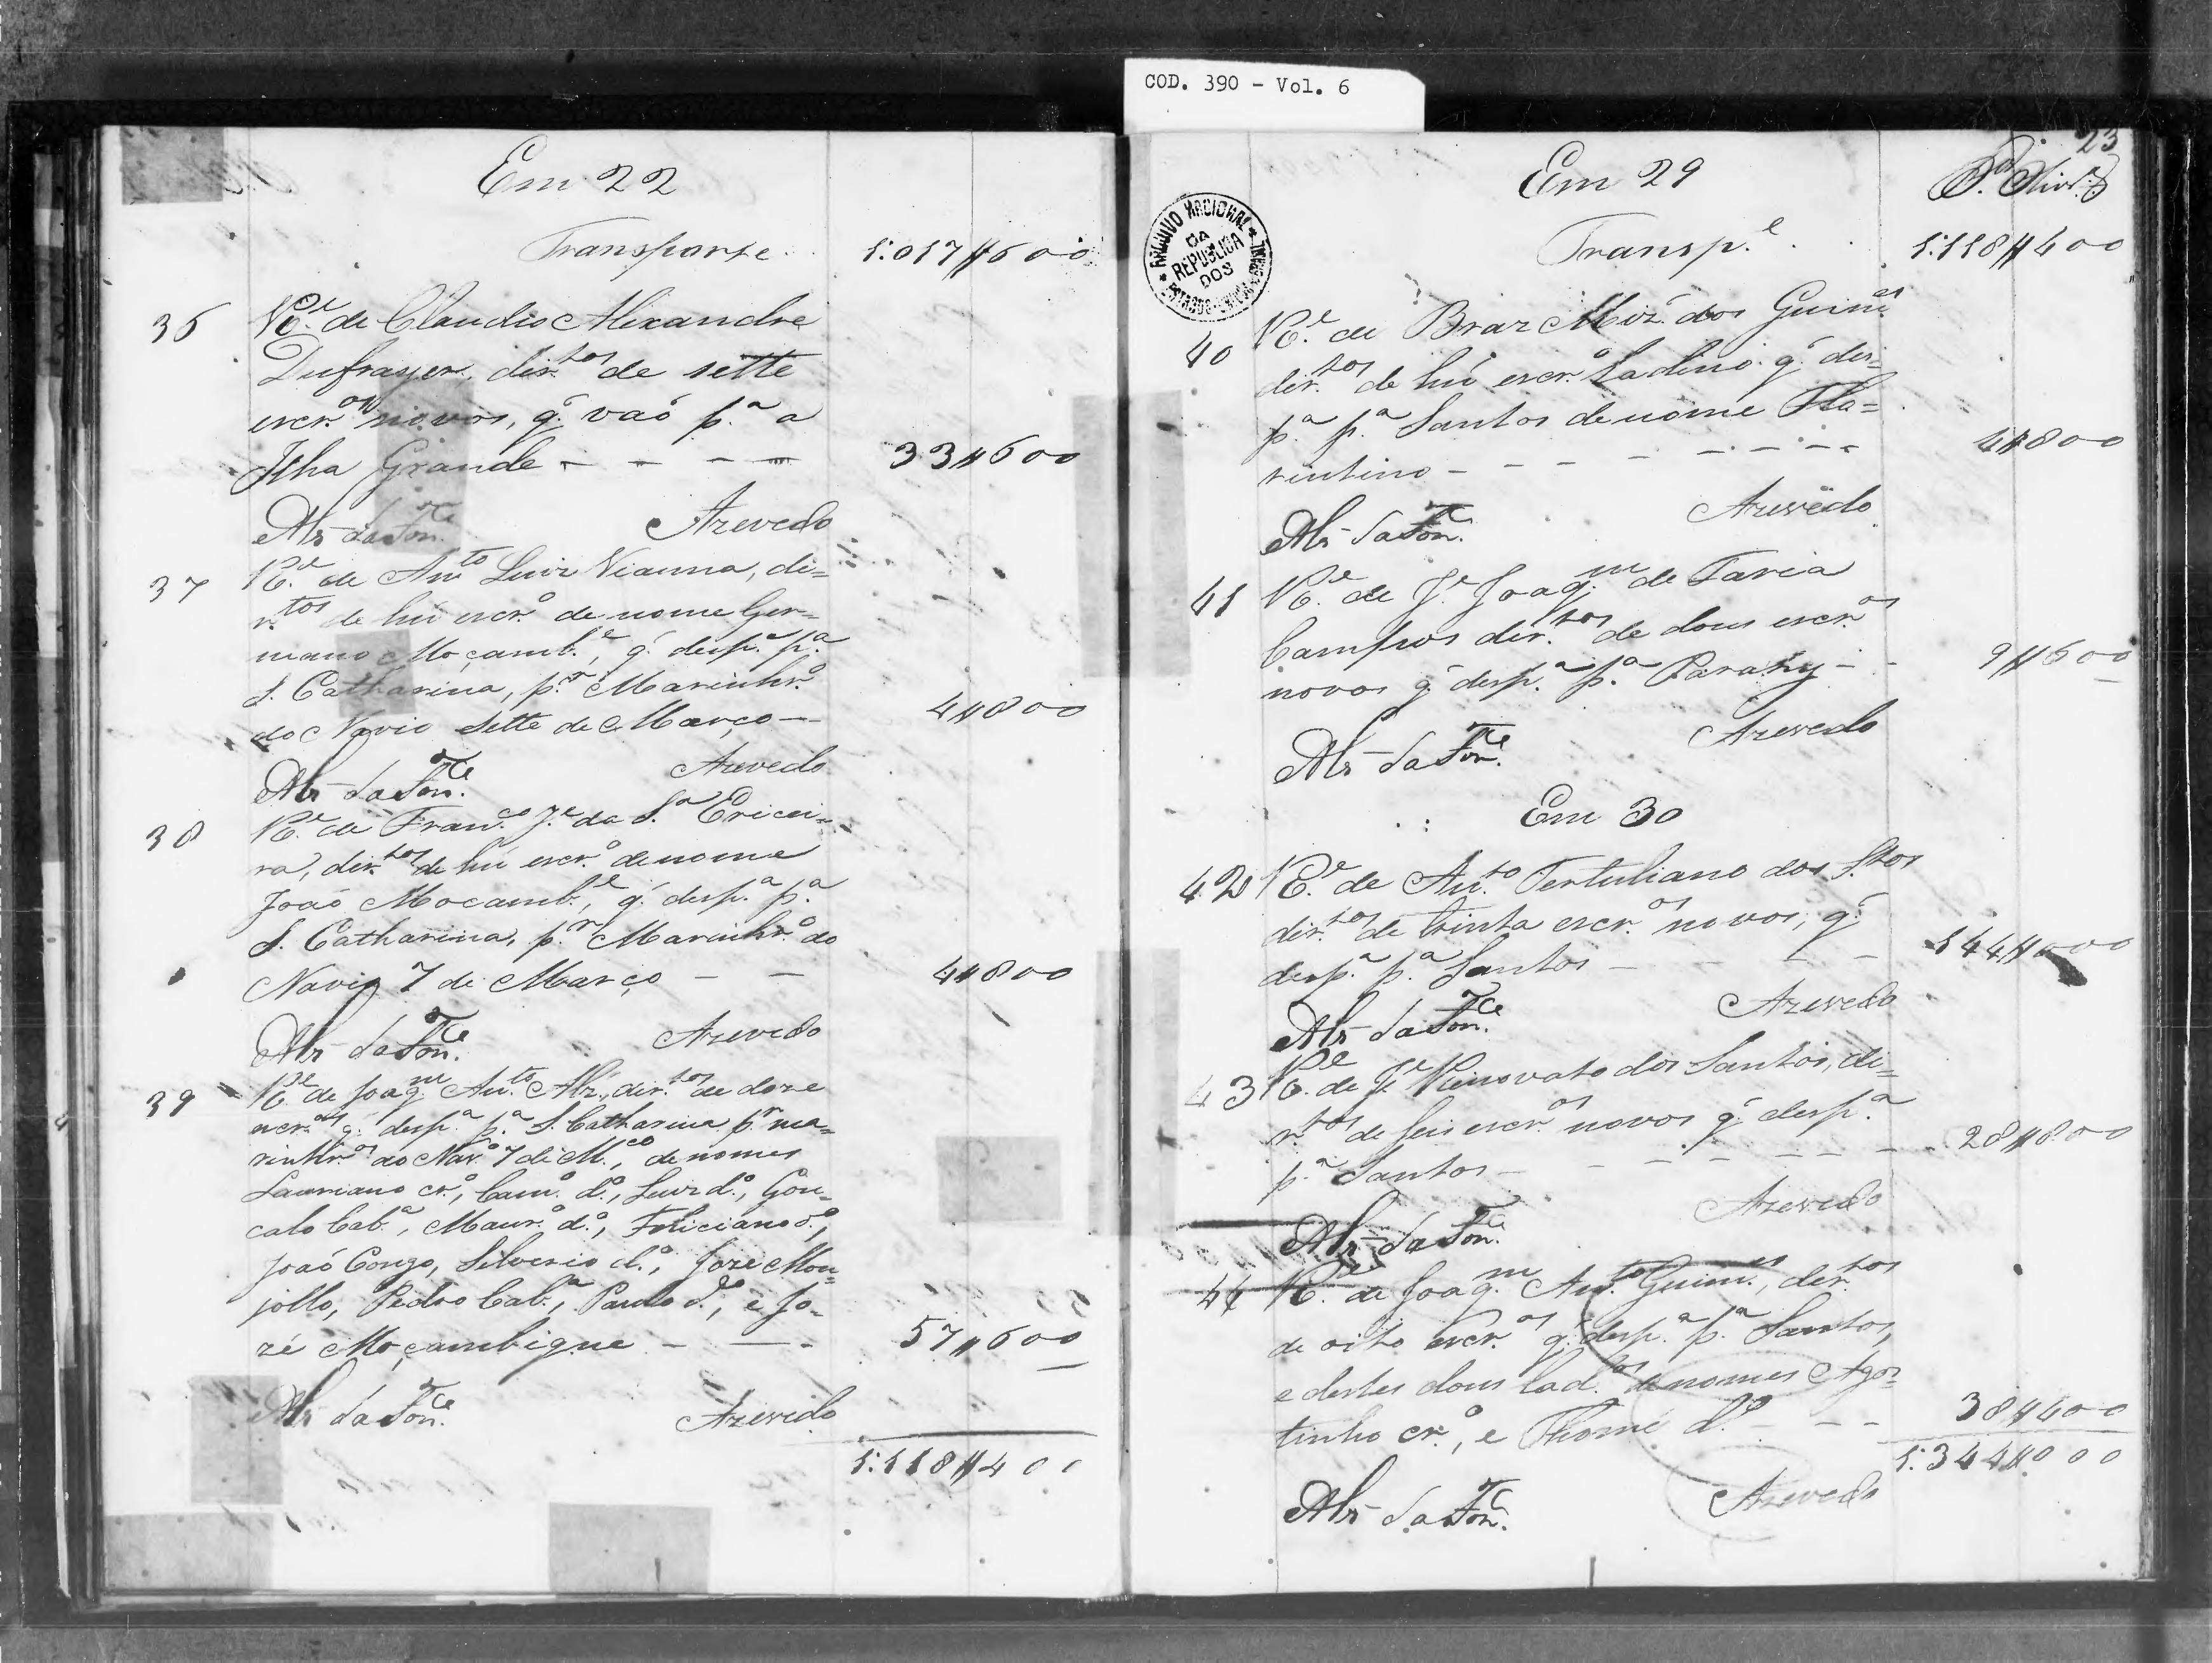 COD. 390 - Vol. 6
Em 22
Transporte 1:017#600
36 R.e de Claudio Alexandre
Dufrayer, dir.tos de sette
escr.os novos, q̃ vaõ p.a a
Ilha Grande - - - - 33#600
Alz da Fon.ce Azevedo
37 R.e de An.to Luiz Vianna, di=
r.tos de hũ escr.o de nome Ger=
mano Moçamb.e, q̃ desp.a p.a
S. Catharina, p.r Marinhr.o
do Navio Sette de Março - 4#800
Alz da Fon.ce Azevedo
38 R.e de Fran.co J.e da S.a Ericei=
ra, dir.tos de hũ escr.o de nome
Joaõ Mocamb.e, q̃ desp.a p.a
S. Catharina, p.r Marinhr.o do
Navio 7 de Março - - 4#800
Alz da Fon.ce Azevedo
39 R.e de Joaq.m An.to Alz., dir.tos de doze
escr.os q̃ desp.a p.a S. Catharina p.r ma=
rinhr.os do Nav.o 7 de M.ço, de nomes
Lauriano cr.o, Cam.o d.o, Luiz d.o, Gon=
calo Cab.a, Maur.o d.o, Feliciano d.o,
Joaõ Congo, Silverio d.o, José Mon=
jollo, Pedro Cab.a, Paulo d.o, e Jo=
zé Moçambique - - - 57#600
Alz da Fon.ce Azevedo
1:118#400
23
Em 29
Transp.e 1:118#400
ARQUIVO NACIONAL
DA
REPUBLICA
DOS
40 R.e de Braz Miz̃ dos Guim.es
dir.tos de hũ escr.o Ladino q̃ des=
p.a p.a Santos de nome Flo=
rintino - - - - - - - 4#800
Alz da Fon.ce Azevedo
41 R.e de J.e Joaq.m de Faria
Campos dir.tos de dous escr.os
novos q̃ desp.a p.a Paraty - - 9#600
Alz da Fon.ce Azevedo
Em 30
42 R.e de An.to Tertuliano dos S.tos
dir.tos de trinta escr.os novos, q̃
desp.a p.a Santos - - - - 144#000
Alz da Fon.ce Azevedo
43 R.e de J.e Renovato dos Santos, di=
r.tos de seis escr.os novos q̃ desp.a
p.a Santos - - - - - - - 28#800
Alz da Fon.ce Azevedo
44 R.e de Joaq.m An.to Guim.es, dir.tos
de oito escr.os q̃ desp.a p.a Santos,
e destes dous lad.os de nomes Agos=
tinho cr.o, e Thomé d.o - - - 38#400
1:344#000
Alz da Fon.ce Azevedo